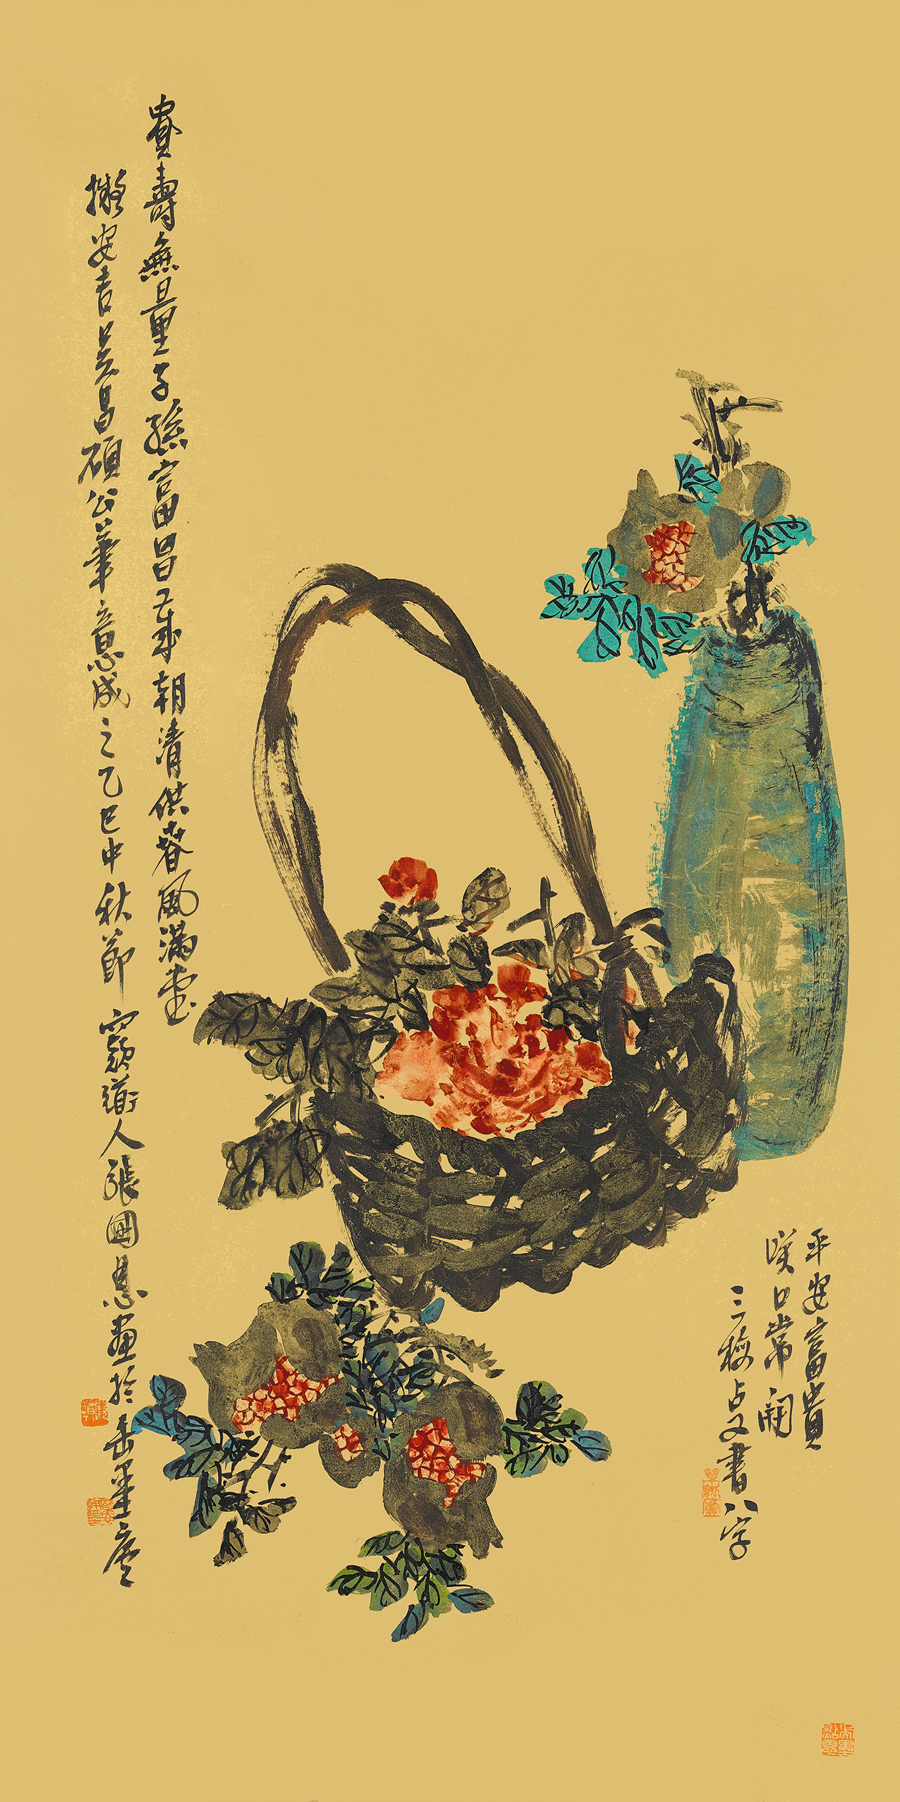 平安富貴
咲口常開
三梅占又書八字
貴壽無量子孫富昌歲朝清供春風滿堂
擬安吉吳昌碩公筆意成之乙巳中秋節 人張國恩畫於